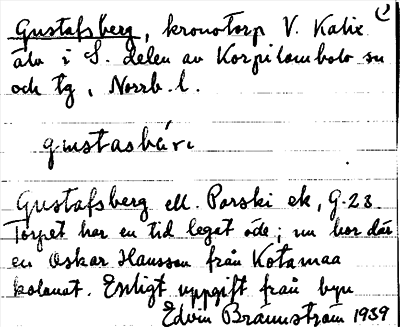 Gustafsberg, kronotorp V. Kalix
älv i S. delen av Korpilombolo sn
och tg, Norrb. l.
gustasbári
Gustafsberg ell. Porski ek, G-23.
Torpet har en tid legat öde; nu bor där
en Oskar Hansson från Kotamaa
kolonat. Enligt uppgift från byn
Edvin Brännström 1939